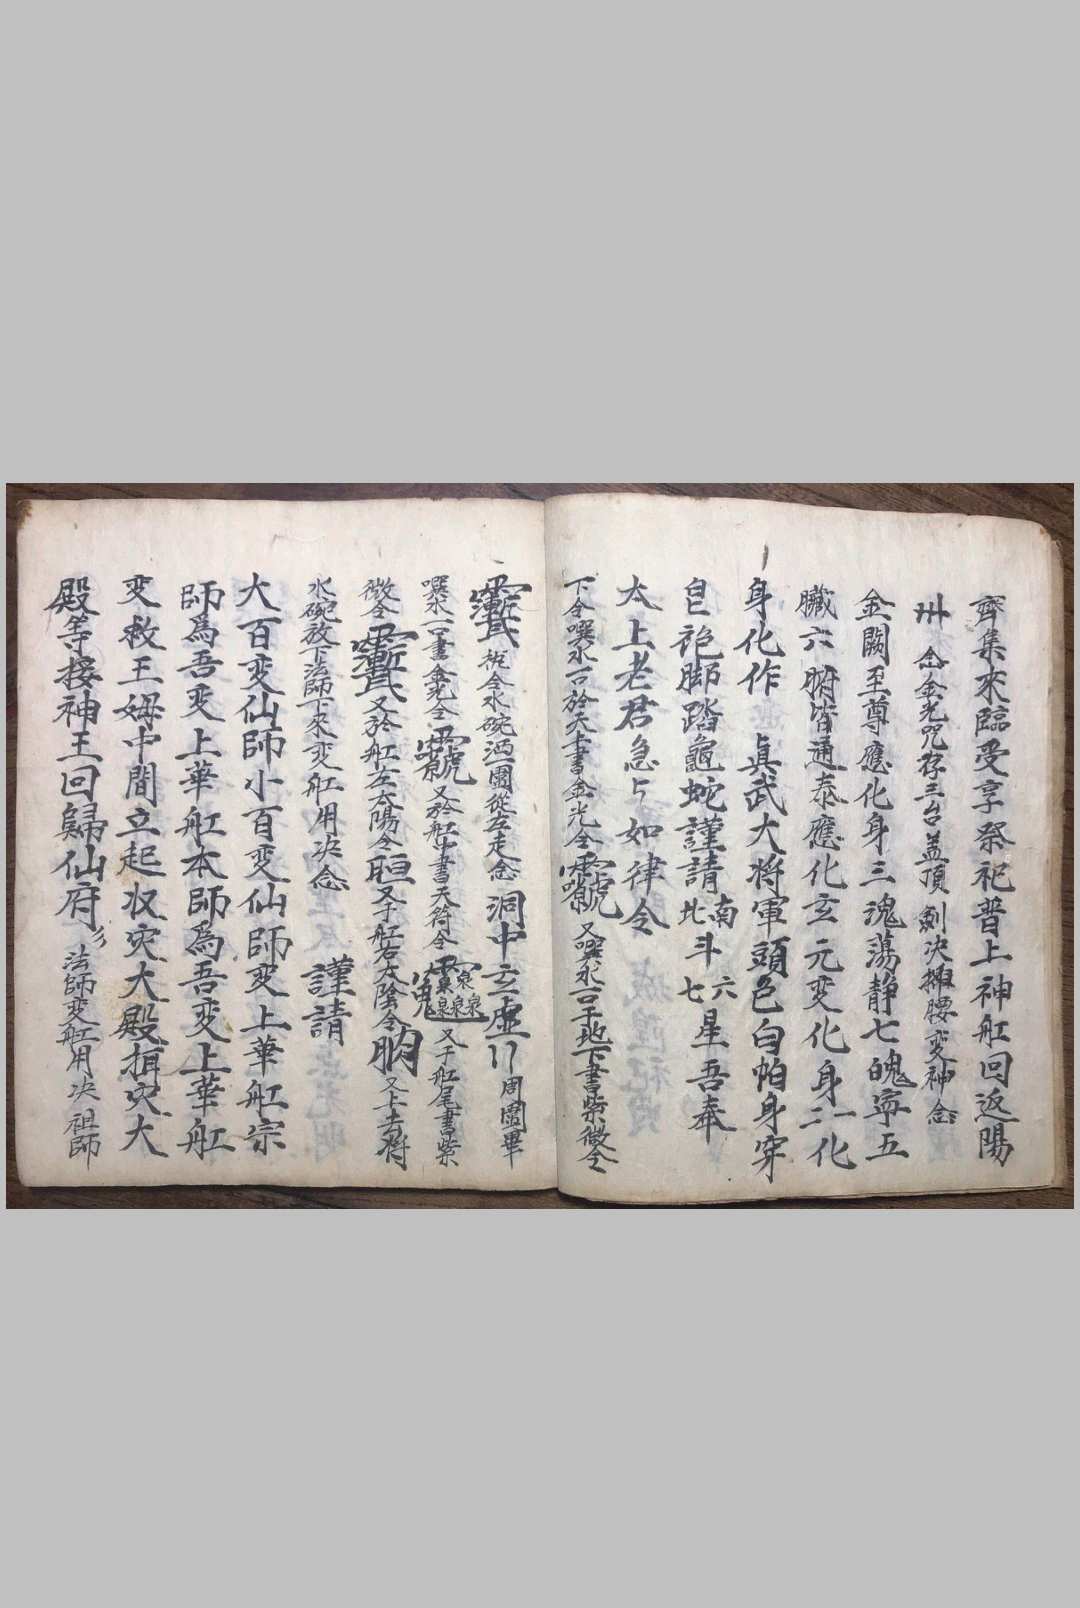 齊集來臨受享祭祀普上神舡回返陽
卅 念金光咒存三台盖頂 劍决 腰变神念
金闕至尊應化身三魂蕩静七魄寧五
臟六腑皆通泰應化玄元变化身一二化
身化作 真武大将軍頭色白帕身穿
皂袍脚踏龜蛇謹請南北斗六七星吾奉
太上老君急々如律令
下令噀水一口於天上書金光令 又噀水一口于地下書紫微令
令水碗洒一團從左走念 洞中玄虛 周圍畢
噀水一口書 令 又於舡中書天符令 又于舡尾書紫
微令 又於舡左太陽令 又于舡右太陰令 又上去将
水碗放下法師下來变舡用决念 謹請
大百变仙師小百变仙師变上華舡宗
師爲吾变上華舡本師爲吾变上華舡
变救王姆中間立起収灾大殿揖灾大
殿等接神王回歸仙府 法師变舡用决 祖師